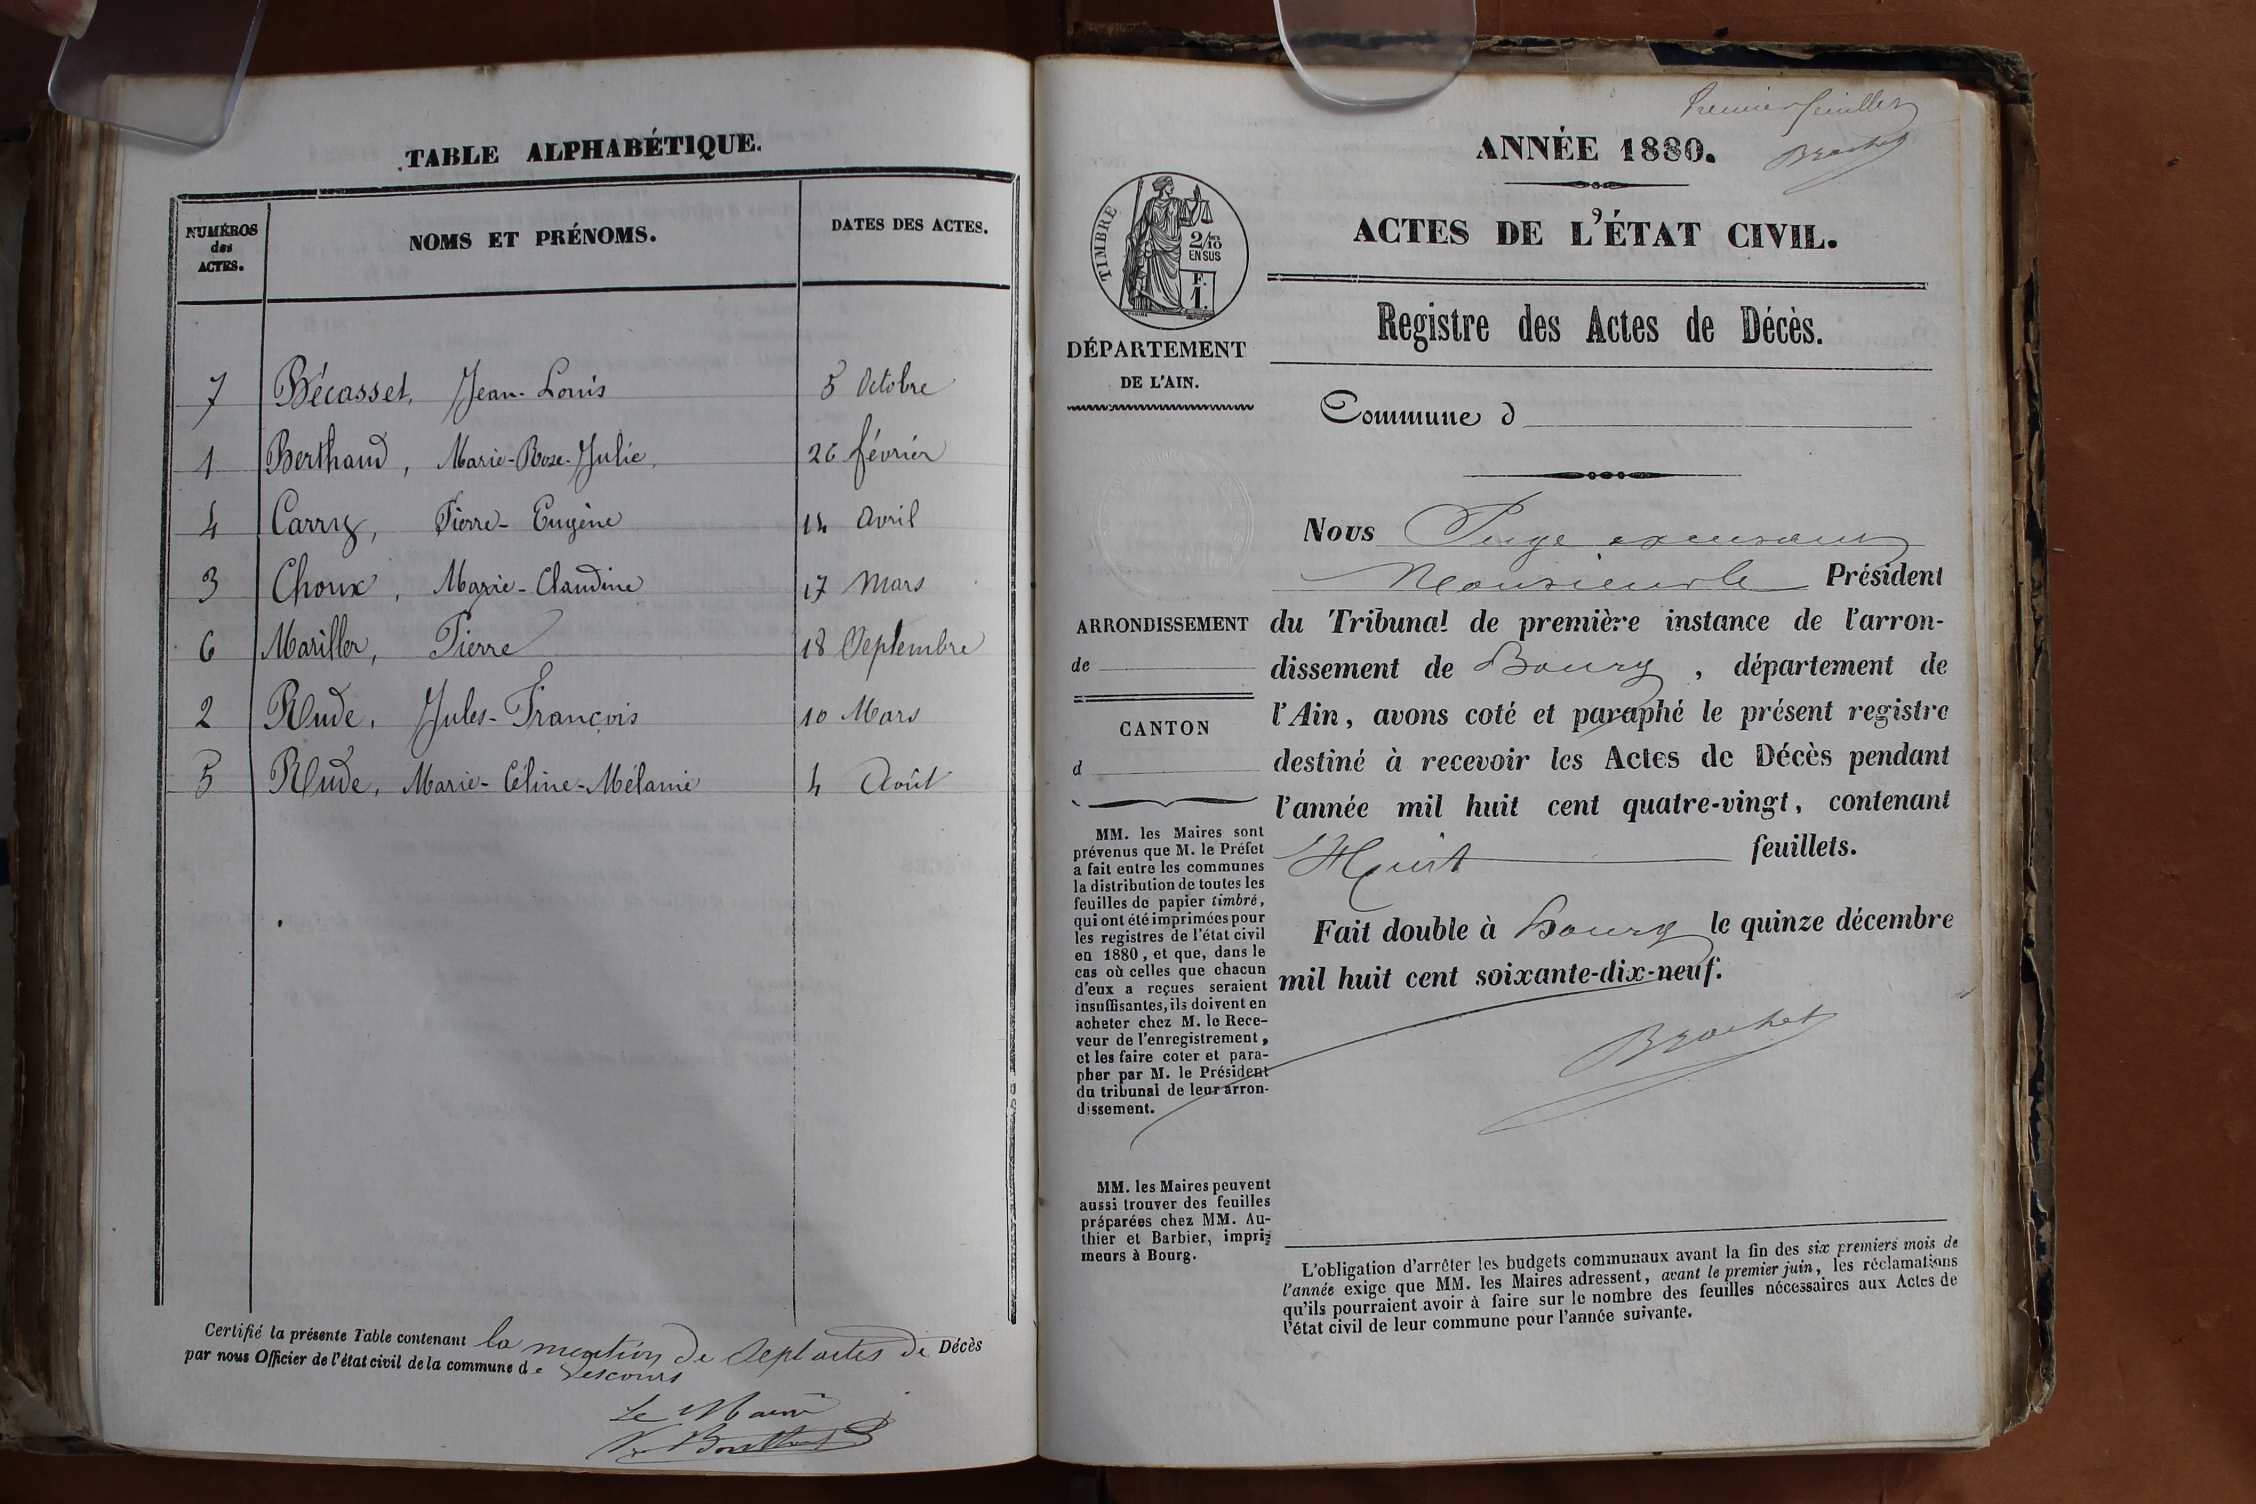 TABLE ALPHABÉTIQUE.
NUMÉROS
des
ACTES.
NOMS ET PRÉNOMS.
DATES DES ACTES.
7 Bécasset, Jean-Louis 5 Octobre
1 Berthaud, Marie-Rose-Julie, 26 février
4 Carry, Pierre-Eugène 14 avril
3 Choux, Marie-Claudine 17 Mars
6 Mariller, Pierre 18 Septembre
2 Rude, Jules-François 10 Mars
5 Rude, Marie-Céline-Mélanie 4 Août
Certifié la présente Table contenant la mention de Sept actes de Décès
par nous Officier de l'état civil de la commune de Lescours
Le Maire
Premier feuillet
Brochet
ANNÉE 1880.
ACTES DE L'ÉTAT CIVIL.
TIMBRE
2/10
EN SUS
F.
1.
DÉPARTEMENT
DE L'AIN.
ARRONDISSEMENT
de
CANTON
d
MM. les Maires sont
prévenus que M. le Préfet
a fait entre les communes
la distribution de toutes les
feuilles de papier timbré,
qui ont été imprimées pour
les registres de l'état civil
en 1880, et que, dans le
cas où celles que chacun
d'eux a reçues seraient
insuffisantes, ils doivent en
acheter chez M. le Rece-
veur de l'enregistrement,
et les faire coter et para-
pher par M. le Président
du tribunal de leur arron-
dissement.
MM. les Maires peuvent
aussi trouver des feuilles
préparées chez MM. Au-
thier et Barbier, impri-
meurs à Bourg.
Registre des Actes de Décès.
Commune d
Nous Juge excusant
Monsieur le Président
du Tribunal de première instance de l'arron-
dissement de Bourg, département de
l'Ain, avons coté et paraphé le présent registre
destiné à recevoir les Actes de Décès pendant
l'année mil huit cent quatre-vingt, contenant
Huit feuillets.
Fait double à Bourg le quinze décembre
mil huit cent soixante-dix-neuf.
Brochet
L'obligation d'arrêter les budgets communaux avant la fin des six premiers mois de
l'année exige que MM. les Maires adressent, avant le premier juin, les réclamations
qu'ils pourraient avoir à faire sur le nombre des feuilles nécessaires aux Actes de
l'état civil de leur commune pour l'année suivante.